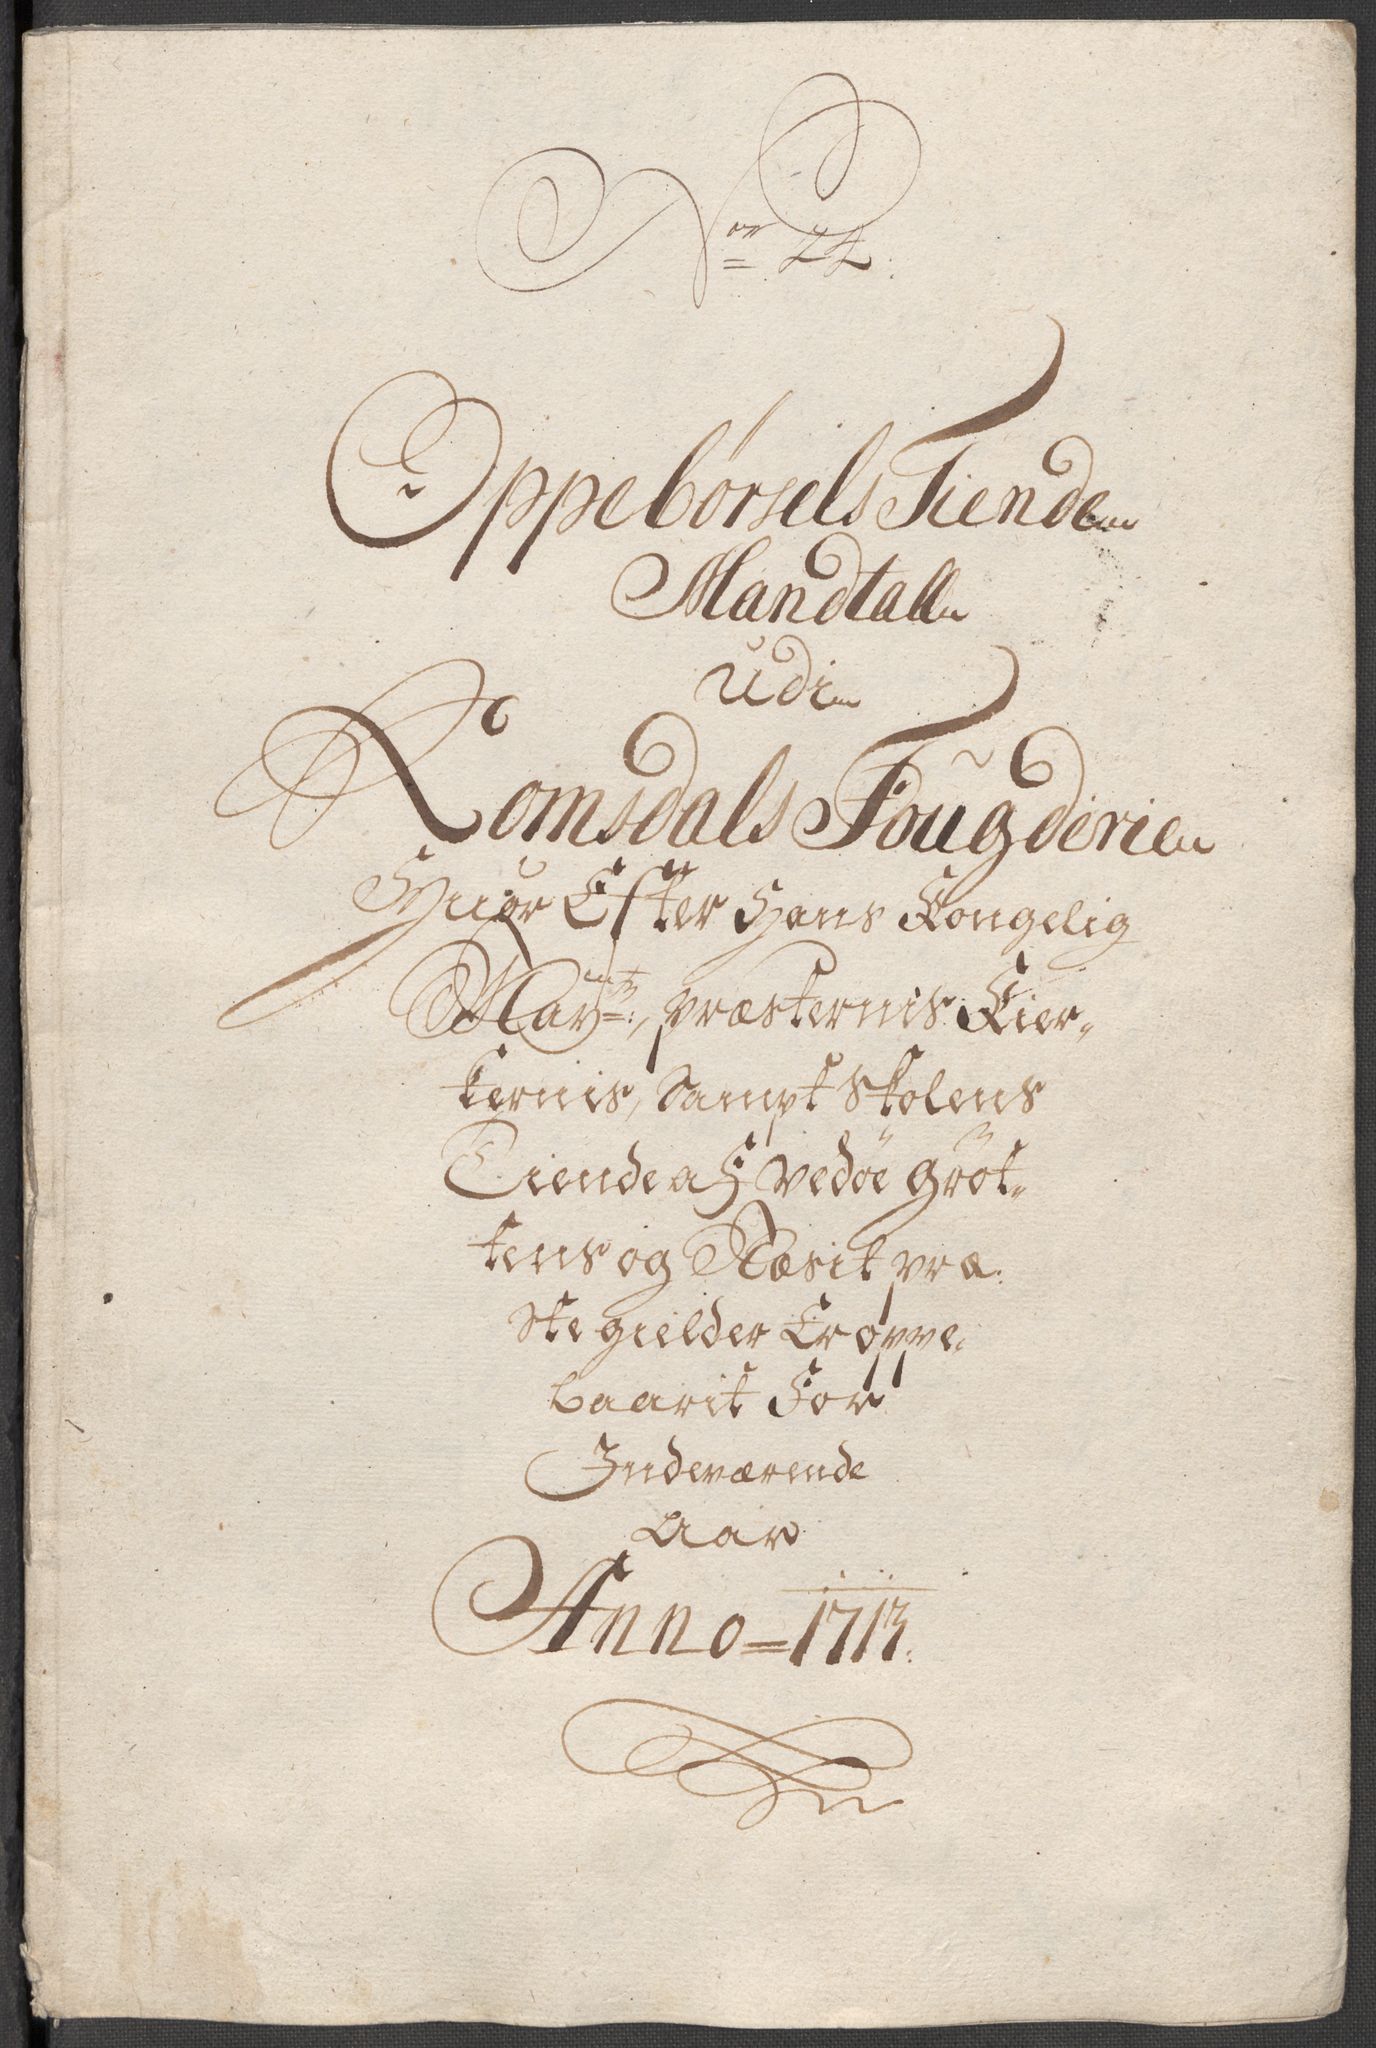 Nor 22.
Oppebørsels Tiende
Mandtall
udi
Romsdals Fougderie
Huor Efter Hans Kongelig
May:tz, Præsternis Kier-
kernis, Sampt Skolens
Tiende af Vedøe Grøt-
tens og Næsit Præ-
stegielder Er oppe-
baarit For
Indeværende
Aar
Anno = 1713.